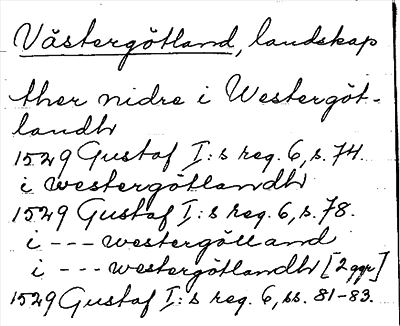 Västergötland, landskap
ther nidre i Westergöt-
landh
1529 Gustaf I:s reg. 6, s. 74.
i westergötlandh
1529 Gustaf I:s reg. 6, s. 78.
i --- westergölland
i --- westergötlandh [2 ggr]
1529 Gustaf I:s reg. 6, ss. 81-83.